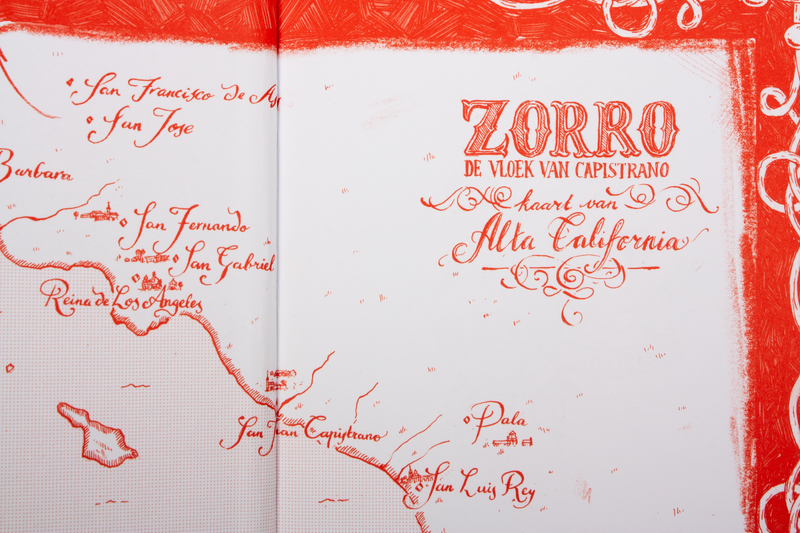 San Francisco de As
San Jose
Barbara
San Fernando
San Gabriel
Reina de Los Angeles
San Juan Capistrano
ZORRO
DE VLOEK VAN CAPISTRANO
kaart van
Alta California
Pala
San Luis Rey